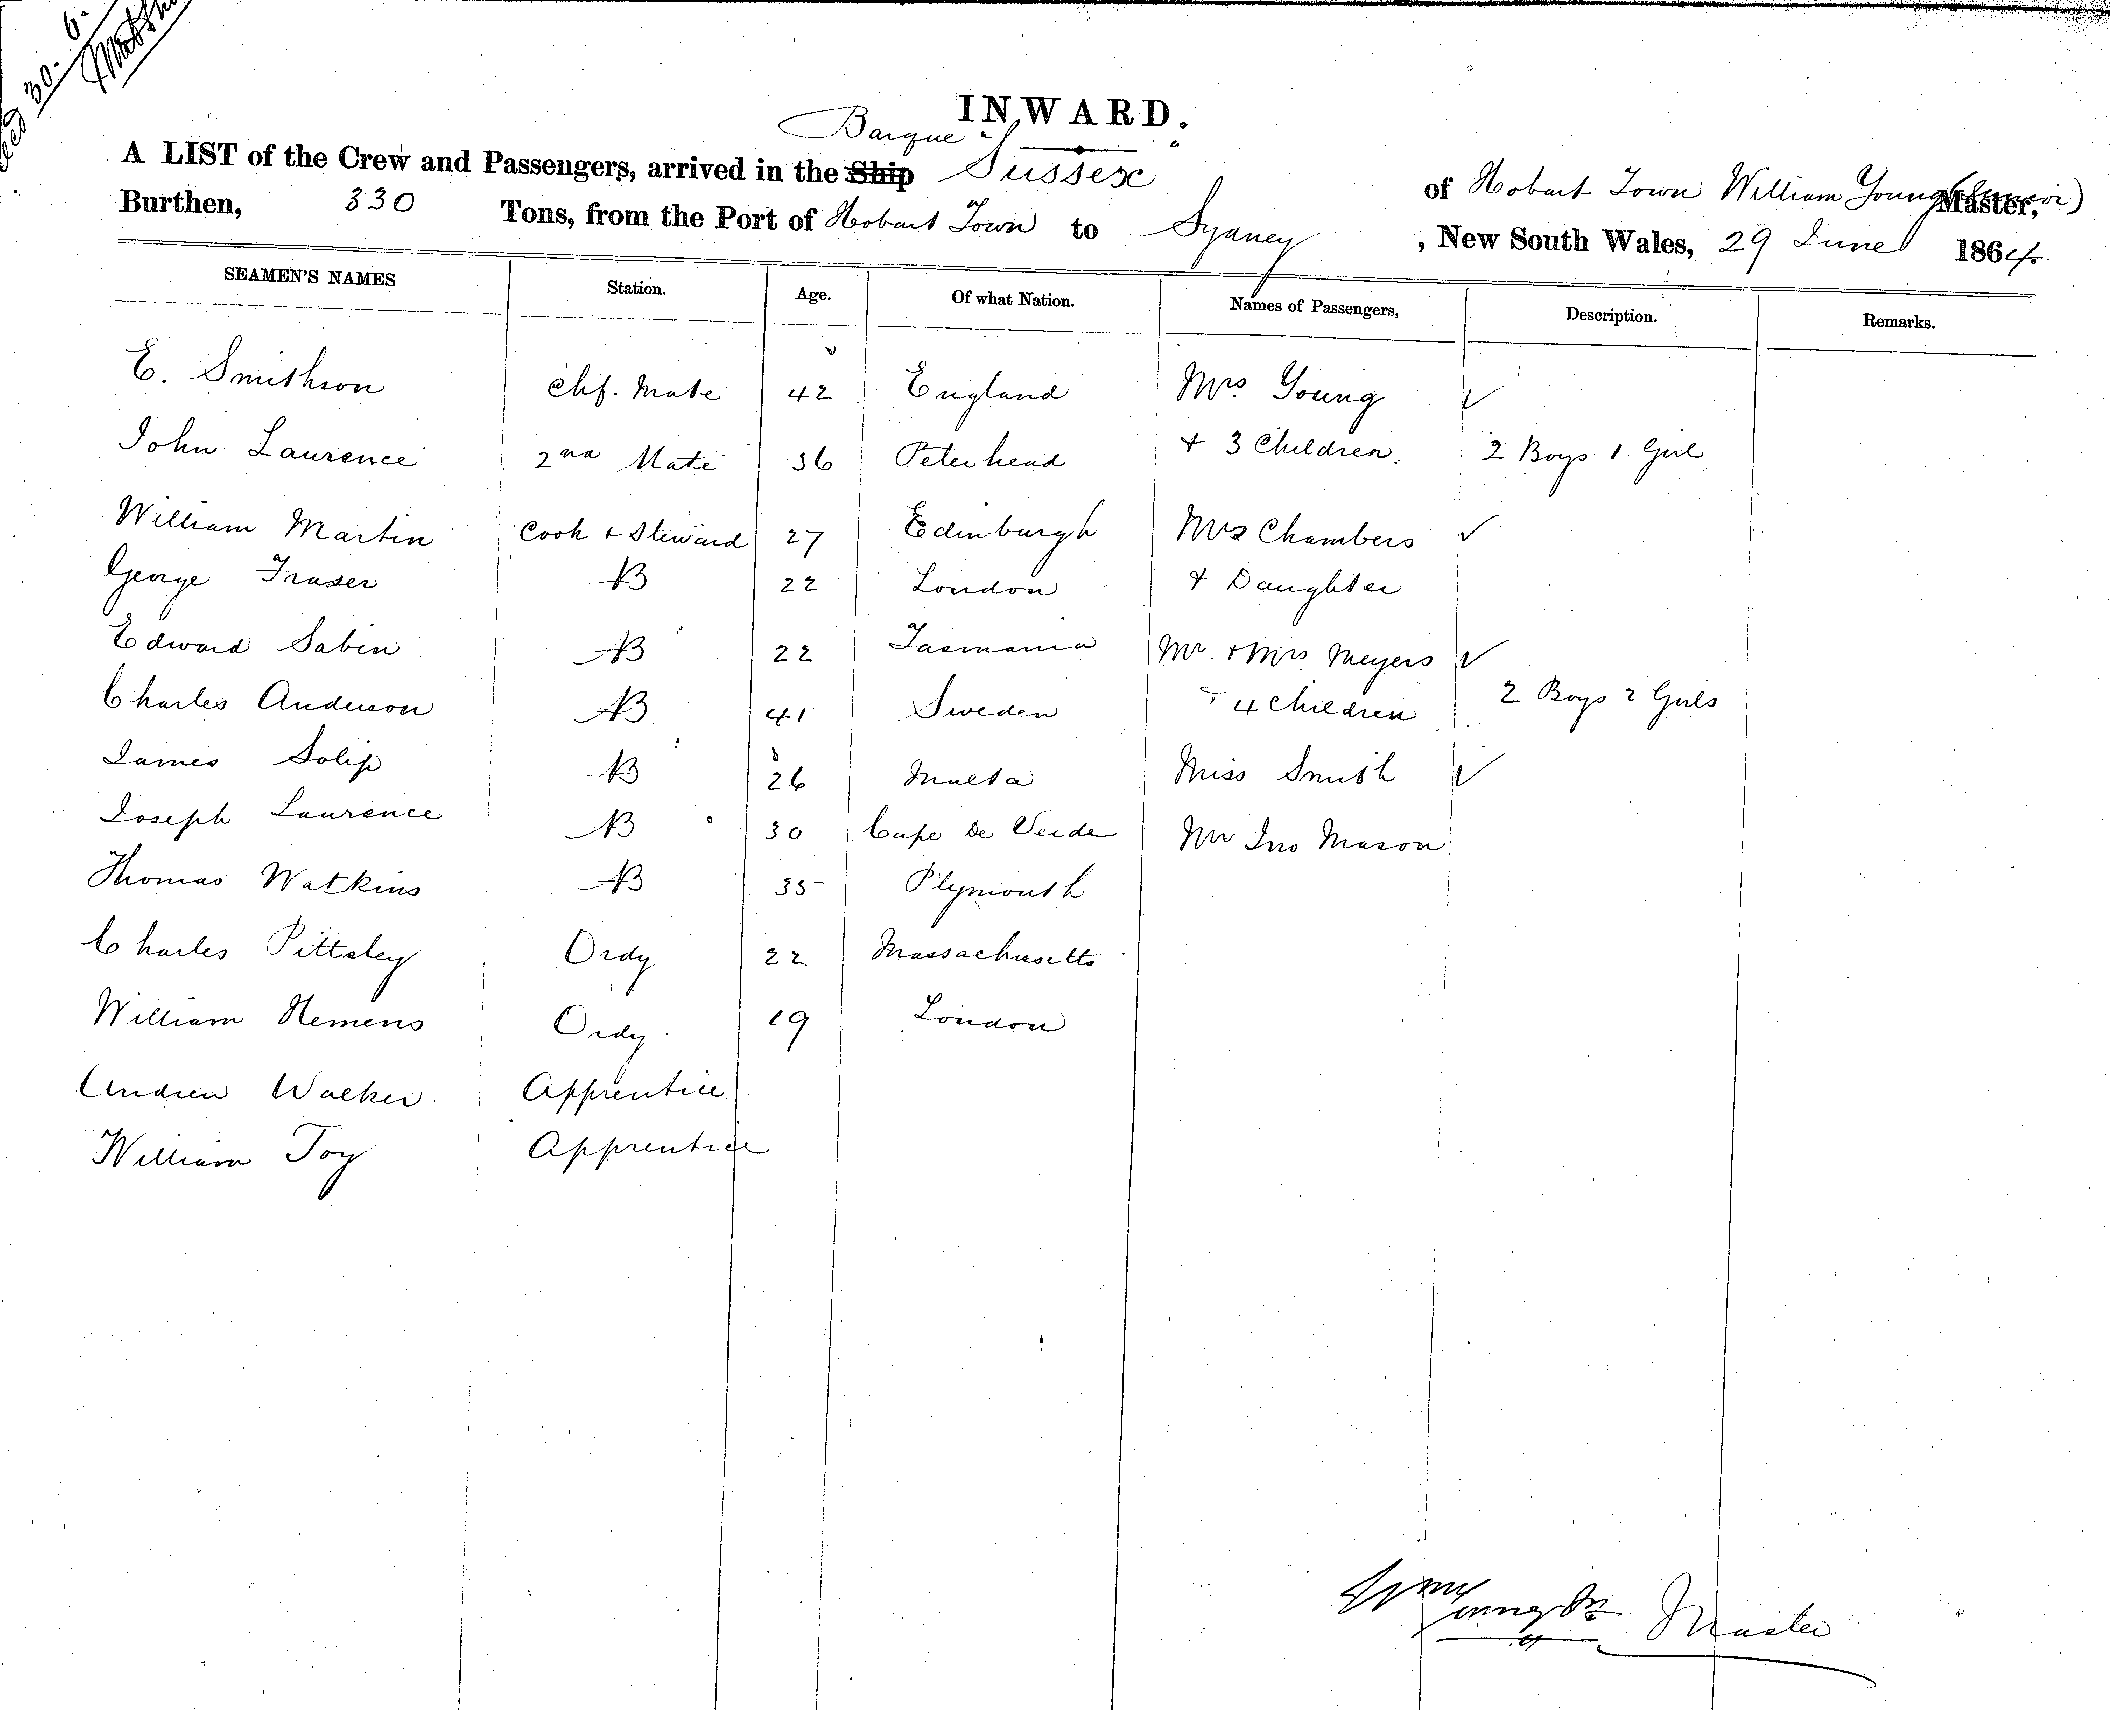 30. 6.
INWARD.
Barque
A LIST of the Crew and Passengers, arrived in the Ship "Sussex" of Hobart Town William Young (Junior) Master,
Burthen, 330 Tons, from the Port of Hobart Town to Sydney, New South Wales, 29 June 1864.
SEAMEN'S NAMES Station. Age. Of what Nation. Names of Passengers, Description. Remarks.
E. Smithson Chf. Mate 42 England Mrs Young ✓
John Laurence 2nd Mate 36 Peterhead + 3 Children. 2 Boys 1 Girl
William Martin Cook + Steward 27 Edinburgh Mrs Chambers ✓
George Fraser AB 22 London + Daughter
Edward Sabin AB 22 Tasmania Mr. + Mrs Meyers ✓
Charles Anderson AB 41 Sweden 4 Children 2 Boys 2 Girls
James Solip AB 26 Malta Miss Smith ✓
Joseph Laurence AB 30 Cape de Verde Mr Jno Mason
Thomas Watkins AB 35 Plymouth
Charles Pittsley Ordy 22 Massachusetts
William Hemens Ordy. 19 London
Andrew Walker Apprentice
William Toy Apprentice
Wm Young Jr Master